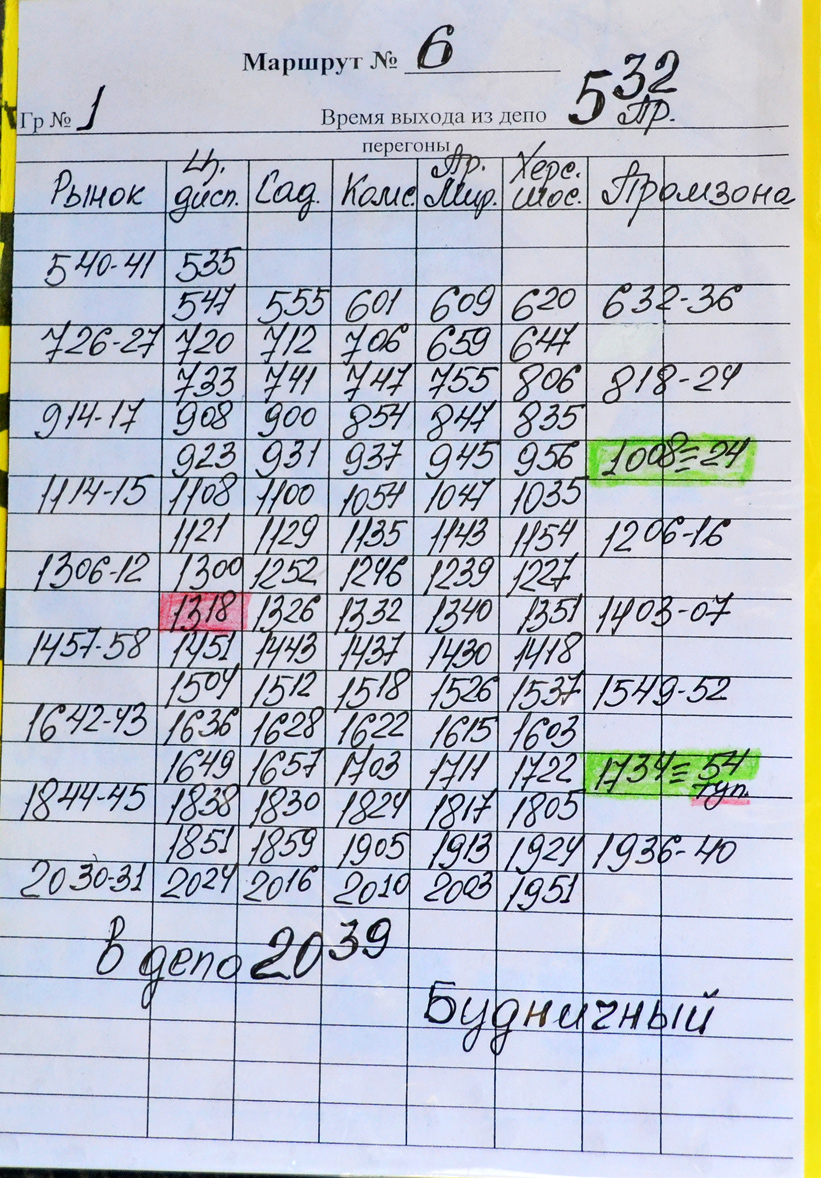 Маршрут № 6
Гр № 1 Время выхода из депо 5 32 Пр.
перегоны
Рынок Ц. дисп. Сад. Комс. Пр. Мир. Херс. шос. Промзона
540-41 535
547 555 601 609 620 632-36
726-27 720 712 706 659 647
733 741 747 755 806 818-24
914-17 908 900 854 847 835
923 931 937 945 956 1008=24
1114-15 1108 1100 1054 1047 1035
1121 1129 1135 1143 1154 1206-16
1306-12 1300 1252 1246 1239 1227
1318 1326 1332 1340 1351 1403-07
1457-58 1451 1443 1437 1430 1418
1504 1512 1518 1526 1537 1549-52
1642-43 1636 1628 1622 1615 1603
1649 1657 1703 1711 1722 1734=54
туп.
1844-45 1838 1830 1824 1817 1805
1851 1859 1905 1913 1924 1936-40
2030-31 2024 2016 2010 2003 1951
В депо 20 39
Будничный